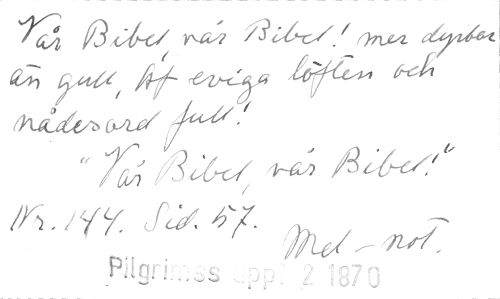 Vår Bibel, vår Bibel! mer dyrbar
än gull, Af eviga löften och
nådesord full!
"Vår Bibel, vår Bibel!"
Nr. 144. Sid. 57.
Mel - not.
Pilgrimss uppl 2 1870